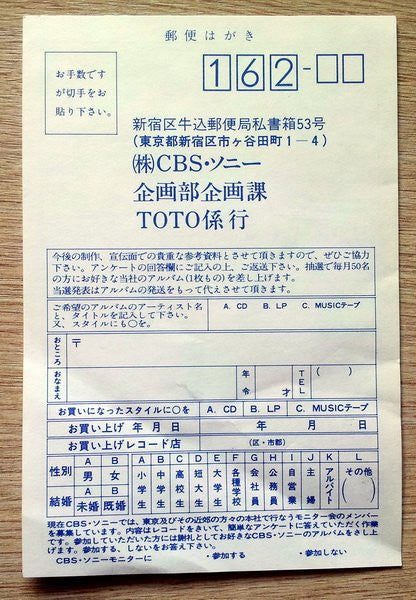 郵便はがき
お手数です
が切手をお
貼り下さい。
162-□□
新宿区牛込郵便局私書箱53号
(東京都新宿区市ヶ谷田町1―4)
(株)CBS・ソニー
企画部企画課
TOTO係行
今後の制作、宣伝面での貴重な参考資料とさせて頂きますので、ぜひご協力
下さい。アンケートの回答欄にご記入の上、ご返送下さい。抽選で毎月50名
の方にお好きな当社のアルバム(1枚もの)を差し上げます。
当選発表はアルバムの発送をもって代えさせて頂きます。
ご希望のアルバムのアーティスト名
と、タイトルを記入して下さい。
又、スタイルにも○を。
A. CD B. LP C. MUSICテープ
おところ 〒
おなまえ 年令 才 TEL ( )
お買いになったスタイルに○を A. CD B. LP C. MUSICテープ
お買い上げ 年 月 日 年 月 日
お買い上げレコード店 (区・市郡)
性別 A 男 B 女
結婚 A 未婚 B 既婚
A 小学生 B 中学生 C 高校生 D 短大生 E 大学生 F 各種学校 G 会社員 H 公務員 I 自営業 J 主婦 K アルバイト L その他( )
現在CBS・ソニーでは、東京及びその近郊の方々の本社で行なうモニター会のメンバー
を募集しています。内容はレコードをきいて、簡単なアンケートに答えていただく作業
です。参加していただいた方には謝礼としてお好きなCBS・ソニーのアルバムをさし上
げます。参加する、しないをお答え下さい。
CBS・ソニーモニターに ・参加する ・参加しない